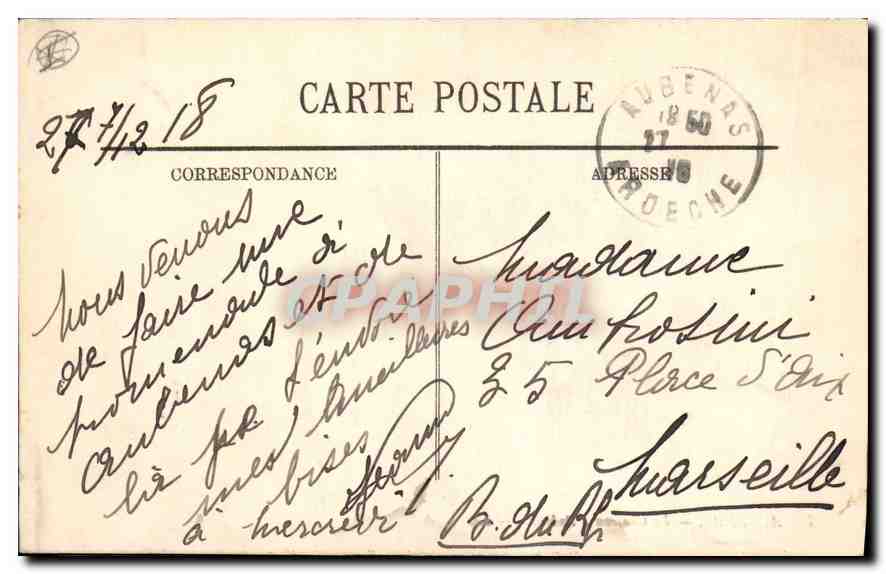 CARTE POSTALE
27/12 18
AUBENAS
18 50
27
18
ARDECHE
CORRESPONDANCE
ADRESSE
nous venons
de faire une
promenade à
aubenas et de
là je t'envoie
mes meilleures
bises
à mercredi
Madame
Ambrosini
35 Place d'aix
Marseille
B. du Rh
CPAPHIL